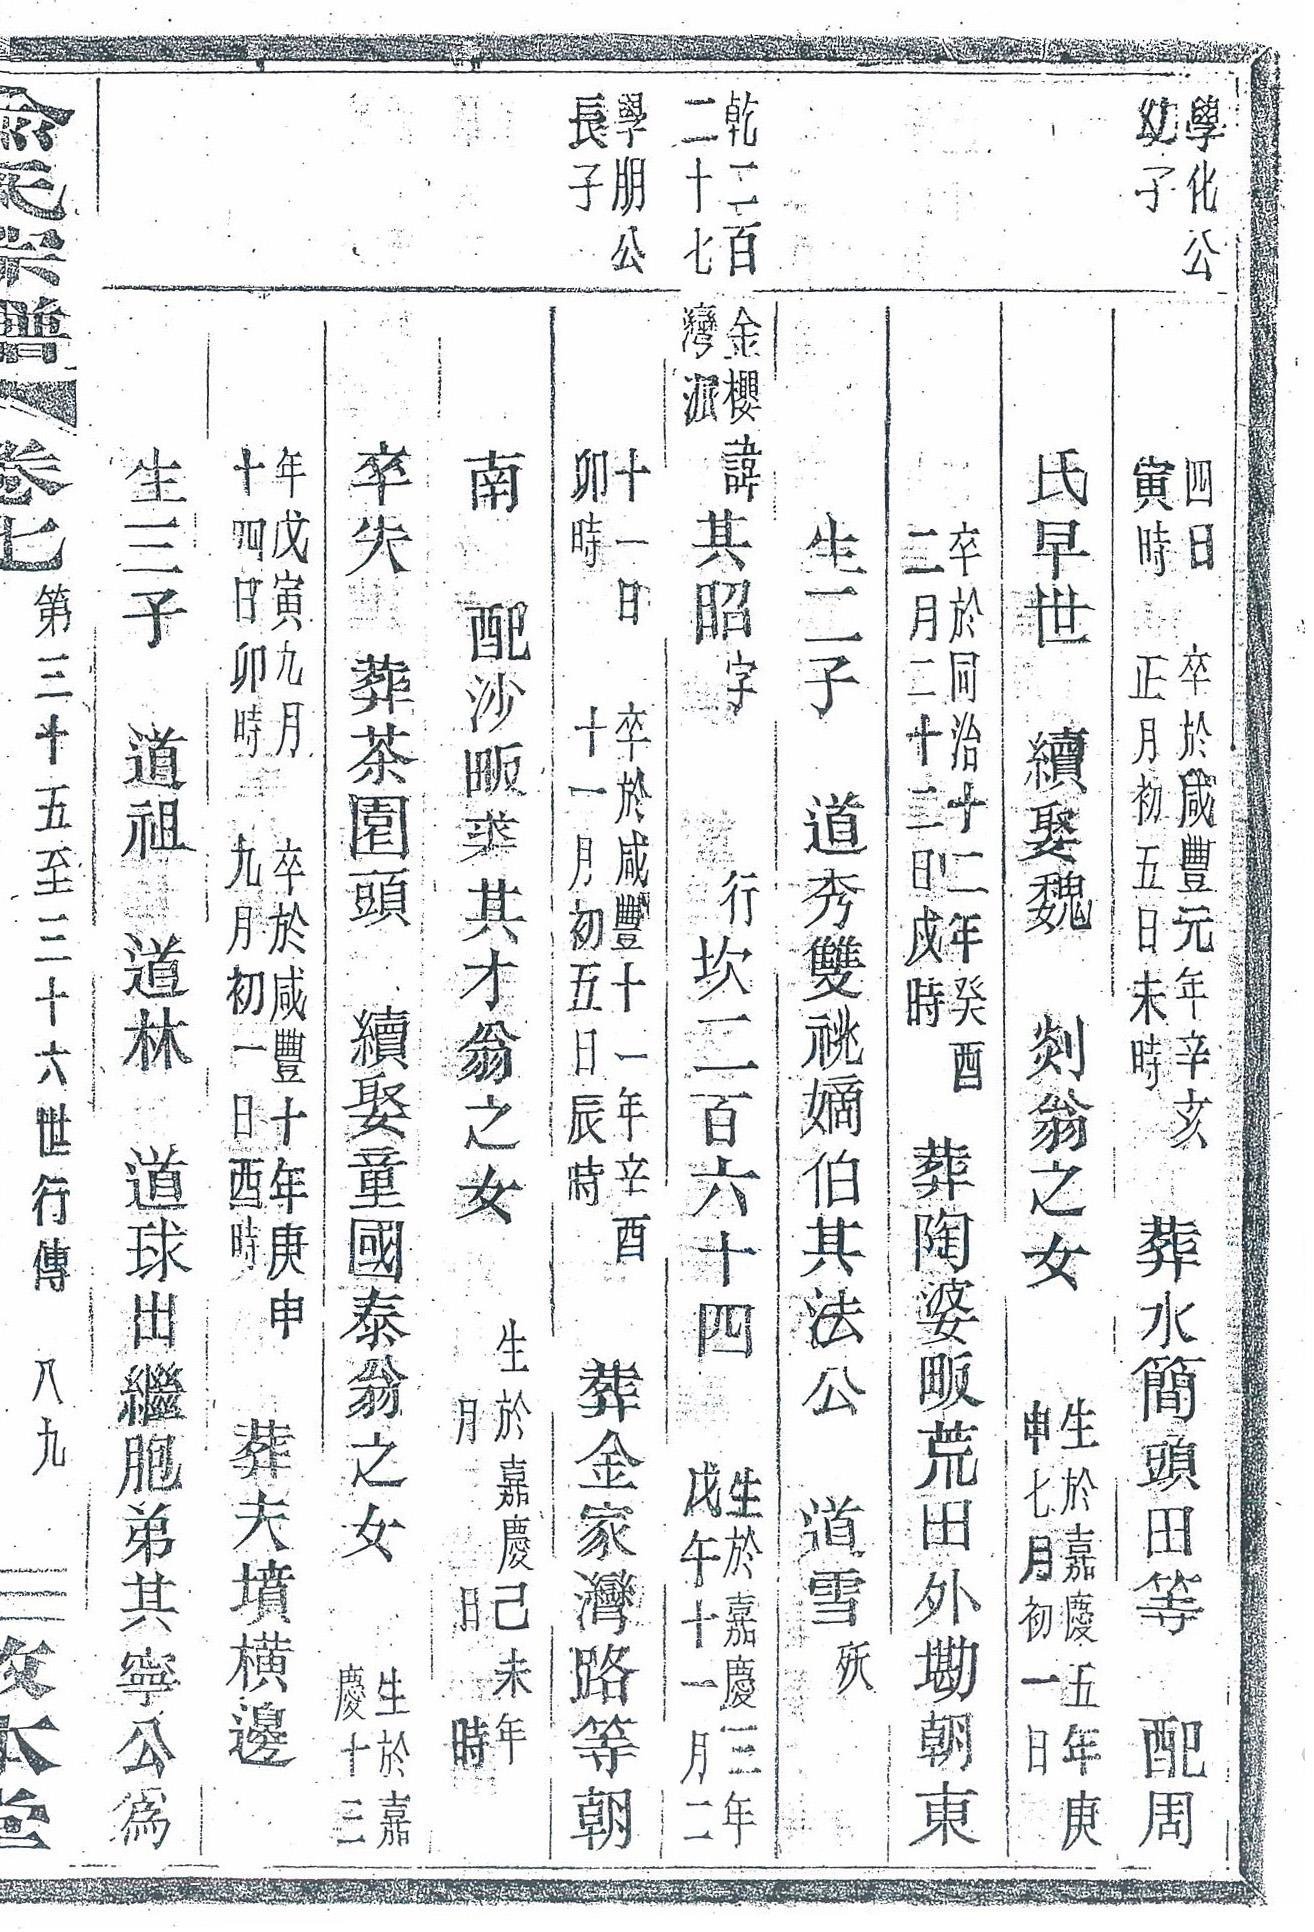 學化公
幼子
四日
寅時
卒於咸豐元年辛亥
正月初五日未時
葬水簡頭田等 配周
氏早世 續娶魏 剡翁之女
生於嘉慶五年庚
申七月初一日
卒於同治十二年癸酉
二月二十二日戌時
葬陶婆畈荒田外墈朝東
生二子 道秀雙祧嫡伯其法公 道雪殀
乾二百
二十七
金櫻
灣派
諱其昭字 行坎二百六十四
生於嘉慶三年
戊午十一月二
學朋公
長子
十一日
卯時
卒於咸豐十一年辛酉
十一月初五日辰時
葬金家灣路等朝
南 配沙畈裘其才翁之女
生於嘉慶己未年
月 日 時
卒失 葬茶園頭 續娶童國泰翁之女
生於嘉
慶十三
年戊寅九月
十四日卯時
卒於咸豐十年庚申
九月初一日酉時
葬夫墳橫邊
生三子 道祖 道林 道球出繼胞弟其寧公為
宗譜 卷七 第三十五至三十六世行傳 八九 敦本堂